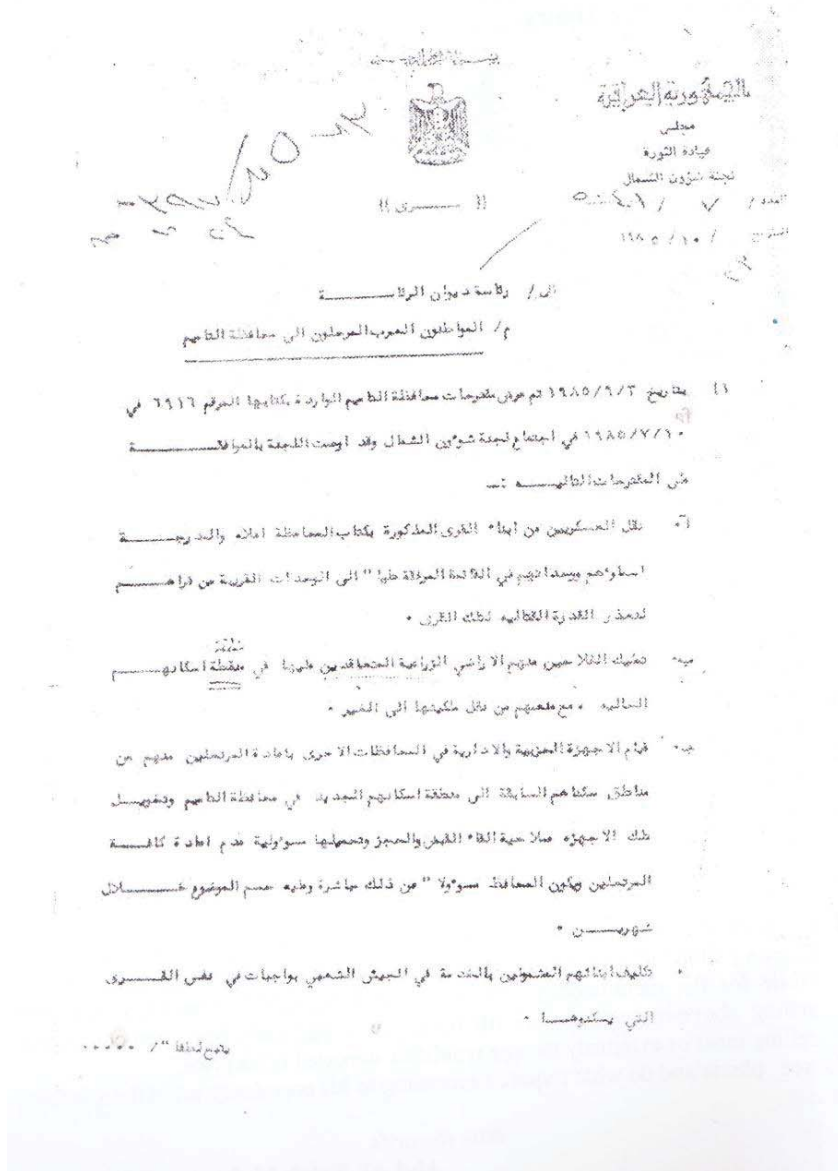 بسم الله الرحمن الرحيم
الجمهورية العراقية
مجلس
قيادة الثورة
لجنة شؤون الشمال
العدد / ٧ /
التاريخ / ١٠ / ١٩٨٥
(( ســـرى ))
الى / رئاسة ديوان الرئاســـــة
م / المواطنون العرب المرحلون الى محافظة التاميم
١) بتاريخ ١٩٨٥/٩/٣ تم عرض مقترحات محافظة التاميم الواردة بكتابها المرقم ٦٩١٦ في
١٩٨٥/٧/١٠ في اجتماع لجنة شوءون الشمال وقد اوصت اللجنة بالموافقـــــــة
على المقترحات التاليـــه :ـ
آ- نقل العسكريين من ابناء القرى المذكورة بكتاب المحافظة اعلاه والمدرجـــــة
اسماوءهم ووحداتهم في القائمة المرفقة طيا" الى الوحدات القريبة من قراهـــم
لتعذر القدرة القتاليه لتلك القرى .
ب- تمليك الفلاحين منهم الاراضي الزراعية المتعاقدين عليها في منطقة اسكانهـــم
منطقة
الحاليه . مع منعهم من نقل ملكيتها الى الغير .
ج- قيام الاجهزة الحزبية والادارية في المحافظات الاخرى باعادة المرتحلين منهم من
مناطق سكناهم السابقة الى منطقة اسكانهم الجديد في محافظة التاميم وتخويـــل
تلك الاجهزه صلاحية القاء القبض والحجز وتحميلها مسوءولية عدم اعادة كافـــة
المرتحلين ويكون المحافظ مسوءولا" عن ذلك مباشرة وعليه حسم الموضوع خـــــلال
شهريـــــن .
. تكليف ابنائهم المشمولين بالخدمة في الجيش الشعبي بواجبات في نفس القـــرى
التي يسكنوهـــا .
يتبع لطفا" / .....